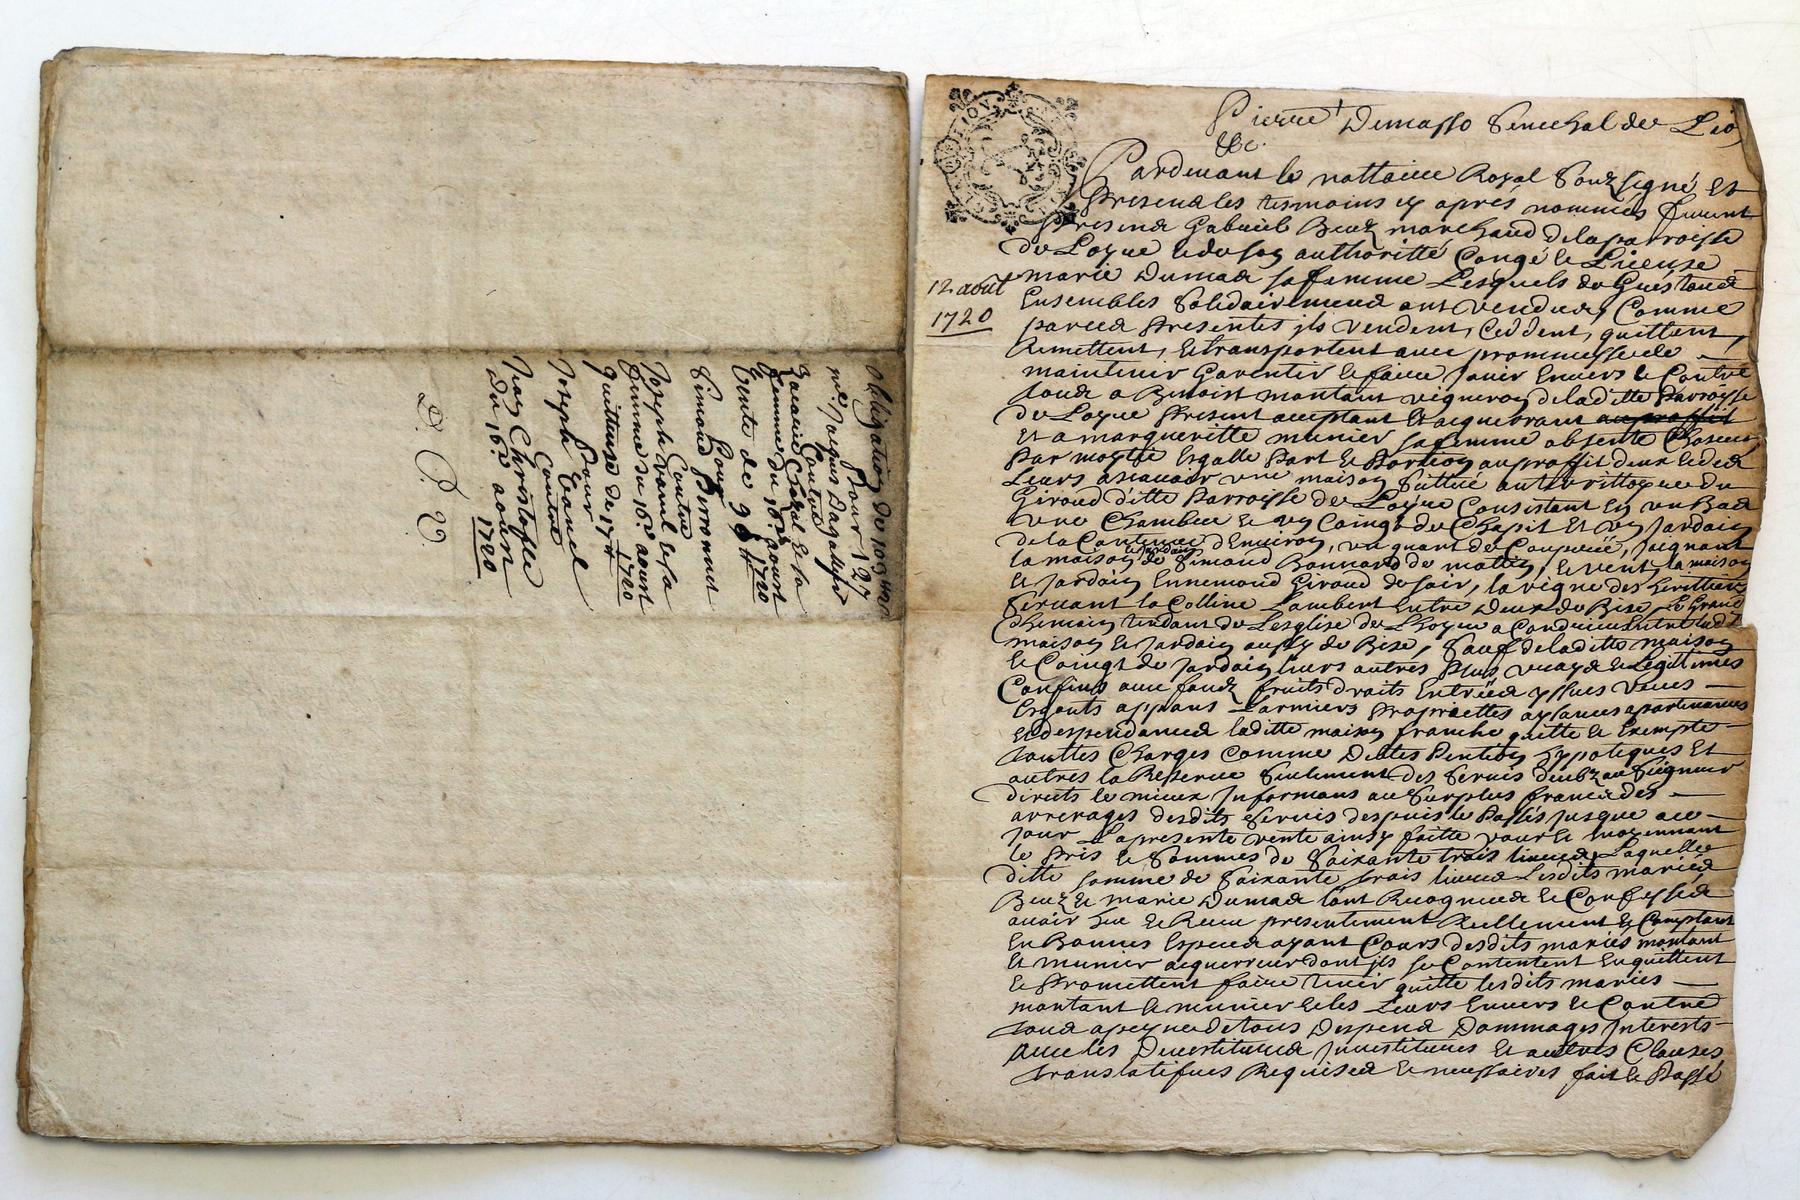 Obligation de 103
Pour 12
pre Jacques Dagallier
Contre
Zacarie Chazal et sa
femme du 16e aoust
1720
Vente de 36
Pour
Simond Perronnet
Contre
Joseph et sa
femme du 16e aoust
1720
quittense de 17
Pour
Joseph
Contre
Jean Christofle
du 16e aoust
1720
Pierre Demasso Senechal de Lio
&c.
12 août
1720
Pardevant le nottaire Royal Souzsigné Et
Presendz les tesmoins cy aprés nommés furent
presend Gabriel Beuz marchand delaparroisse
de Loyre de son authoritté Congé et License
marie Dumad sa femme Lesquels de Gués
Ensembles Solidairement ont vendu Comme
par ces presentes jls vendent, Ceddent, quittent,
Remettent, et transportent avec prommesse de
maintenir Garentir et faire jouir Envers et Contre
tous a Benoist montant vigneron deladitte Parroisse
de Loyre Present aceptant et acquerant auproffit
Et a margueritte munier sa femme absente Chascun
Par moytié Esgalle Part et Portion auproffit deux et des
Leurs ascavoir une maison Sittue au
Giroud ditte Parroisse de Loyre Consistant En un Bas
une Chambre et un Coingt de Chapit Et un Jardain
de la Contenue denviron, un quart de Couppeé, joignant
la maison et jardain de Simond Bonnard de matin, et vent la maison
et Jardain Ennemond Giroud de soir, la vigne des herittiers
Servant la Colline Lambert Entre deux de Bize, Le Grand
Chemain tendant de Lesglise de Lhoyre a Condrieu Entre
maison et Jardain aussy de Bize, Sauf deladitte maison
et Coingt de Jardain leurs autres Plus vrayd et Legittimes
Confins avec fondz fruits droits Entreés yssues veues
Esgouts appans Larmiers Proprietttes aysances apartenances
et despendances laditte maison franche quitte et Exempte
touttes Charges Comme Debtes Pention hypotiques Et
autres la Reserve Seulement des Servis deubz au Seigneur
directs le mieux Jnformans au Surplus franc des
arrerages desdits Servis despuis le Passés jusque a ce
jour Lapresente vente ainsy faitte pour et moyennant
le Pris et Sommes de Soixante trois livres Laquelle
ditte somme de Soixante trois livres Lesdits mariés
Beuz et marie Dumad tout Recognus et Confessés
avoir heu et Receu presentement Reellement et Comptant
En Bonnes Especes ayant Cours desdits mariés montant
Et munier acquerreur dont jls se Contentent En quittent
et Promettent faire tenir quitte lesdits mariés
montant et munier et les Leurs Envers et Contre
tous a peyne de tous Despens Dommages Jnterests
avec les Devestitures Jnvestitures Et autres Clauses
translatifves Requises et necessaires fait et Passé